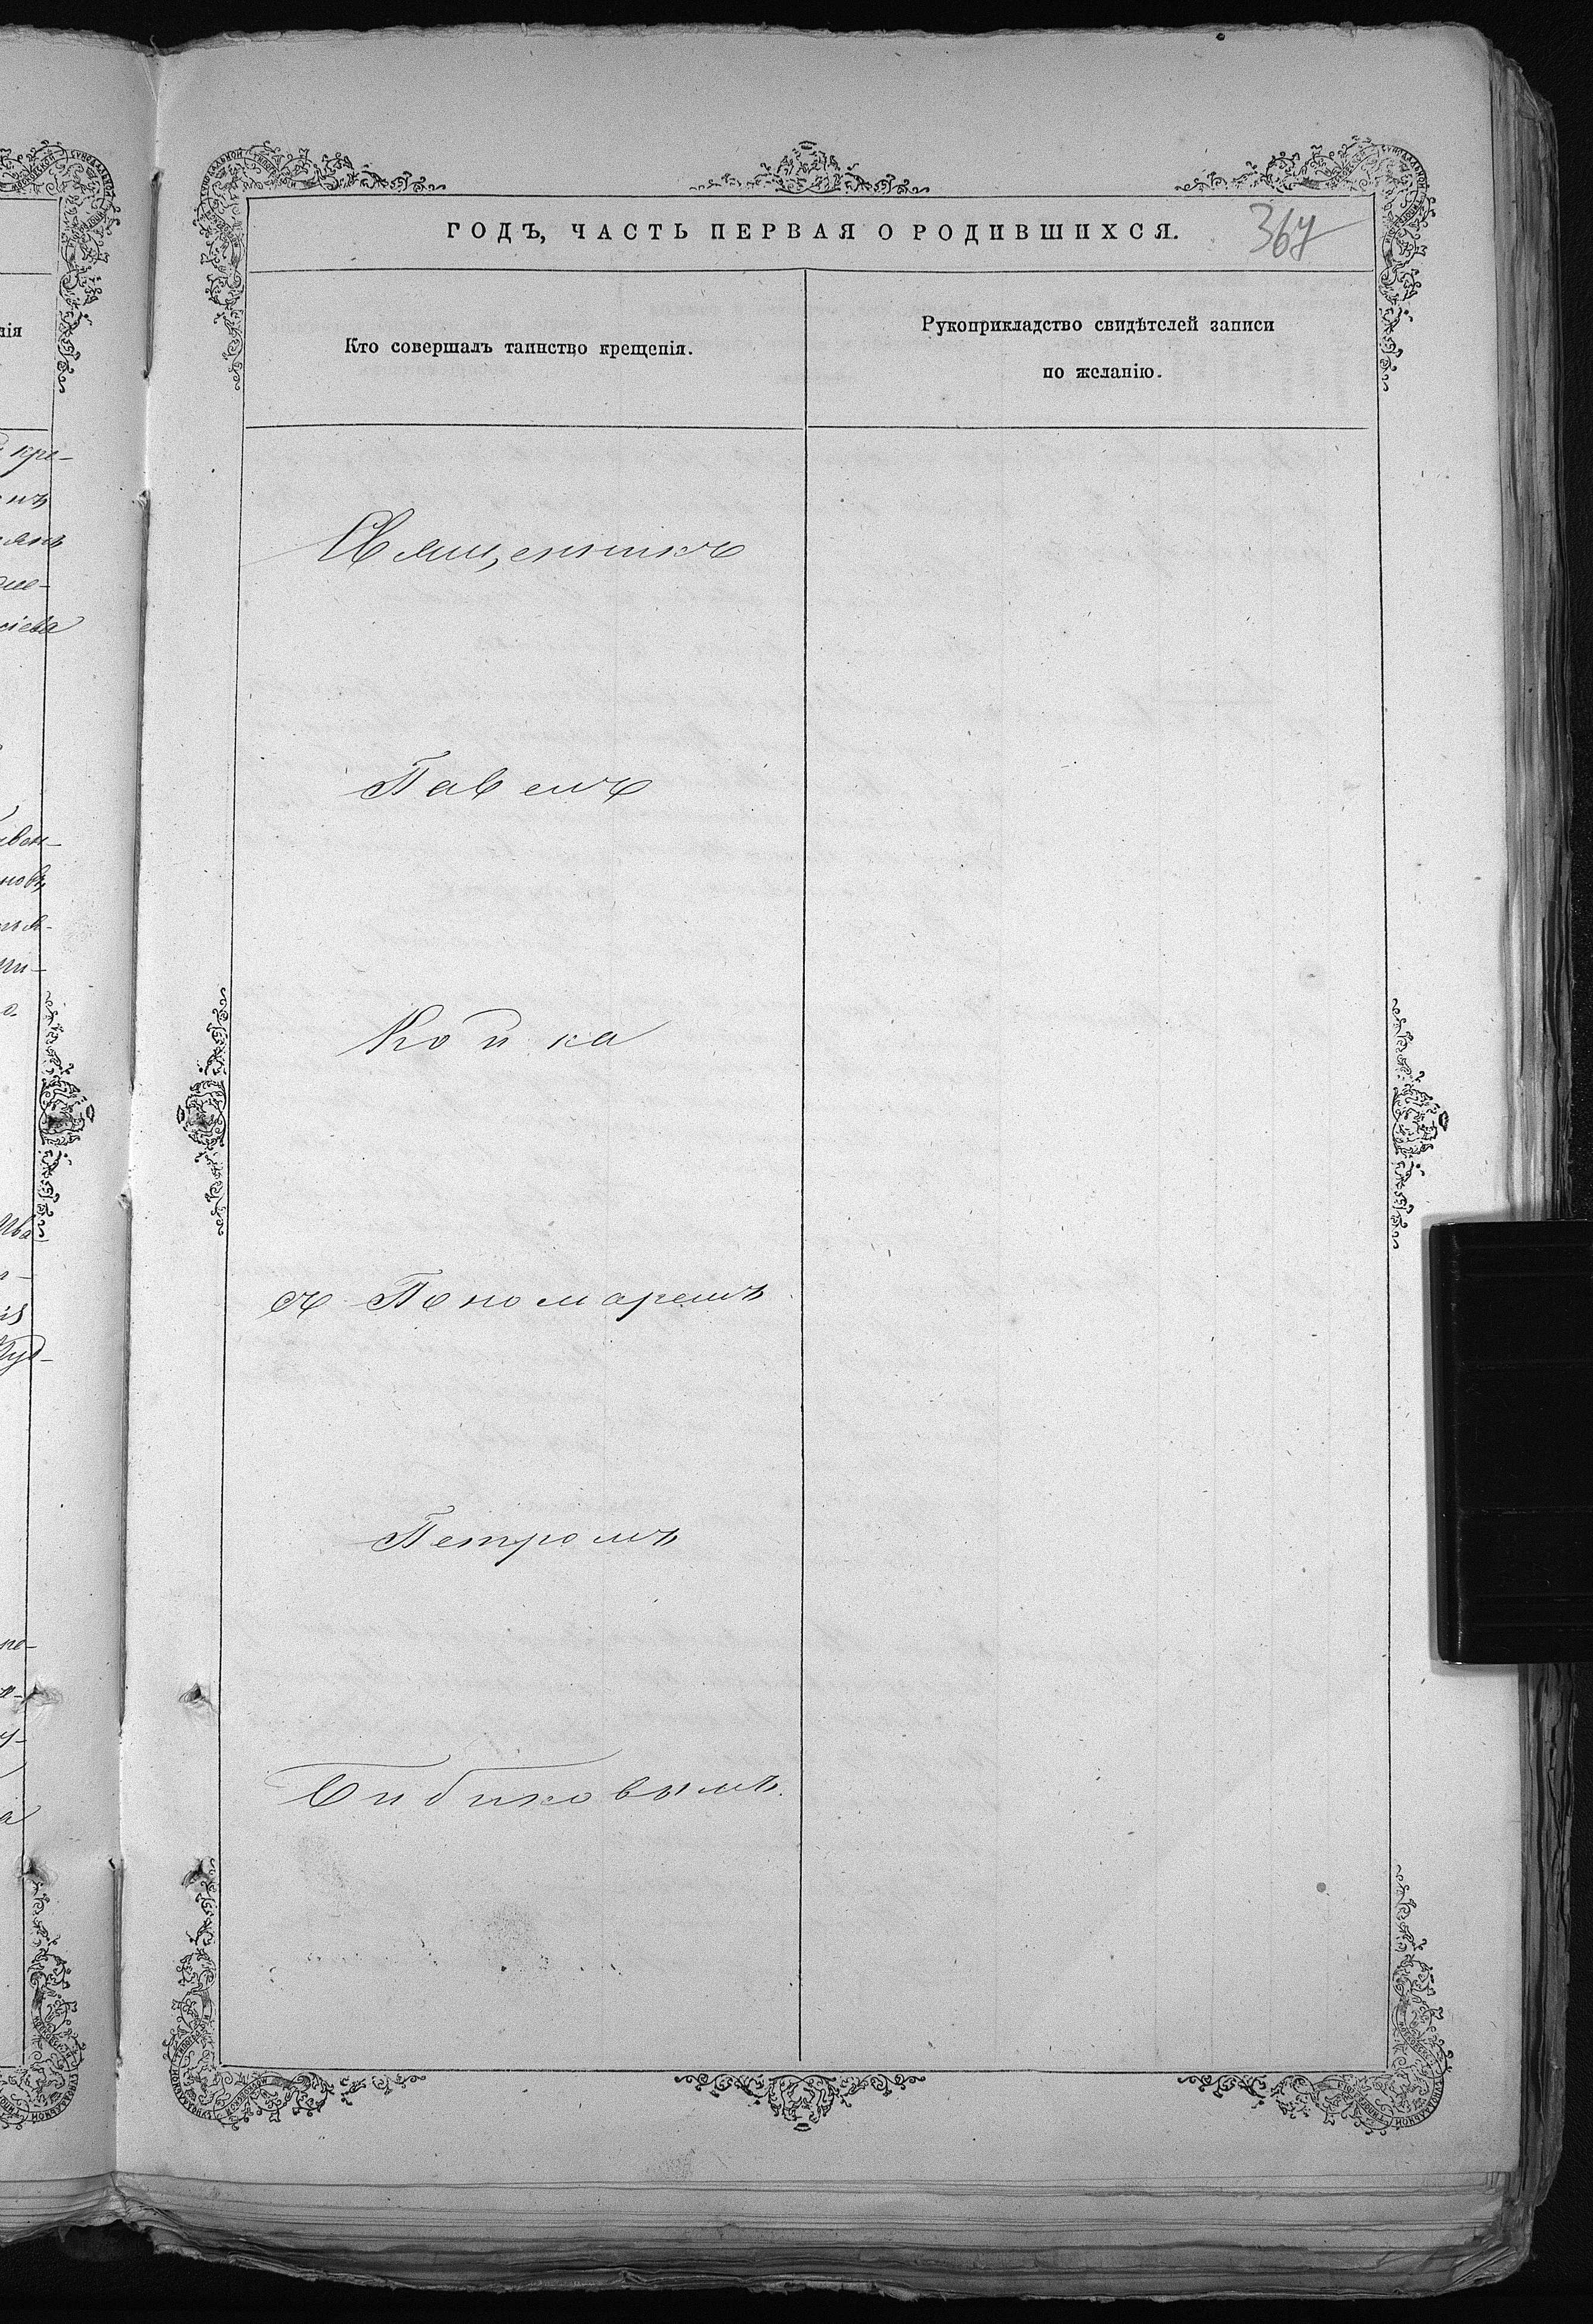 ГОДЪ, ЧАСТЬ ПЕРВАЯ О РОДИВШИХСЯ.
367
Кто совершалъ таинство крещенія.
Рукоприкладство свидѣтелей записи
по желанію.
Священникъ
Павелъ
Койка
съ Пономаремъ
Петромъ
Бибиковымъ.